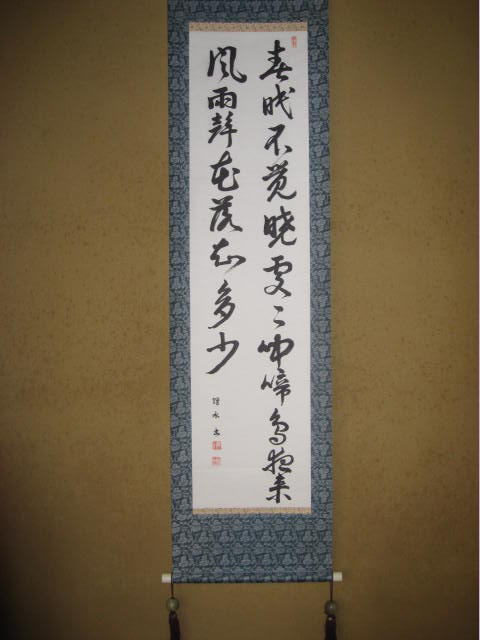 春眠不覚暁處々聞啼鳥夜来
風雨聲花落知多少